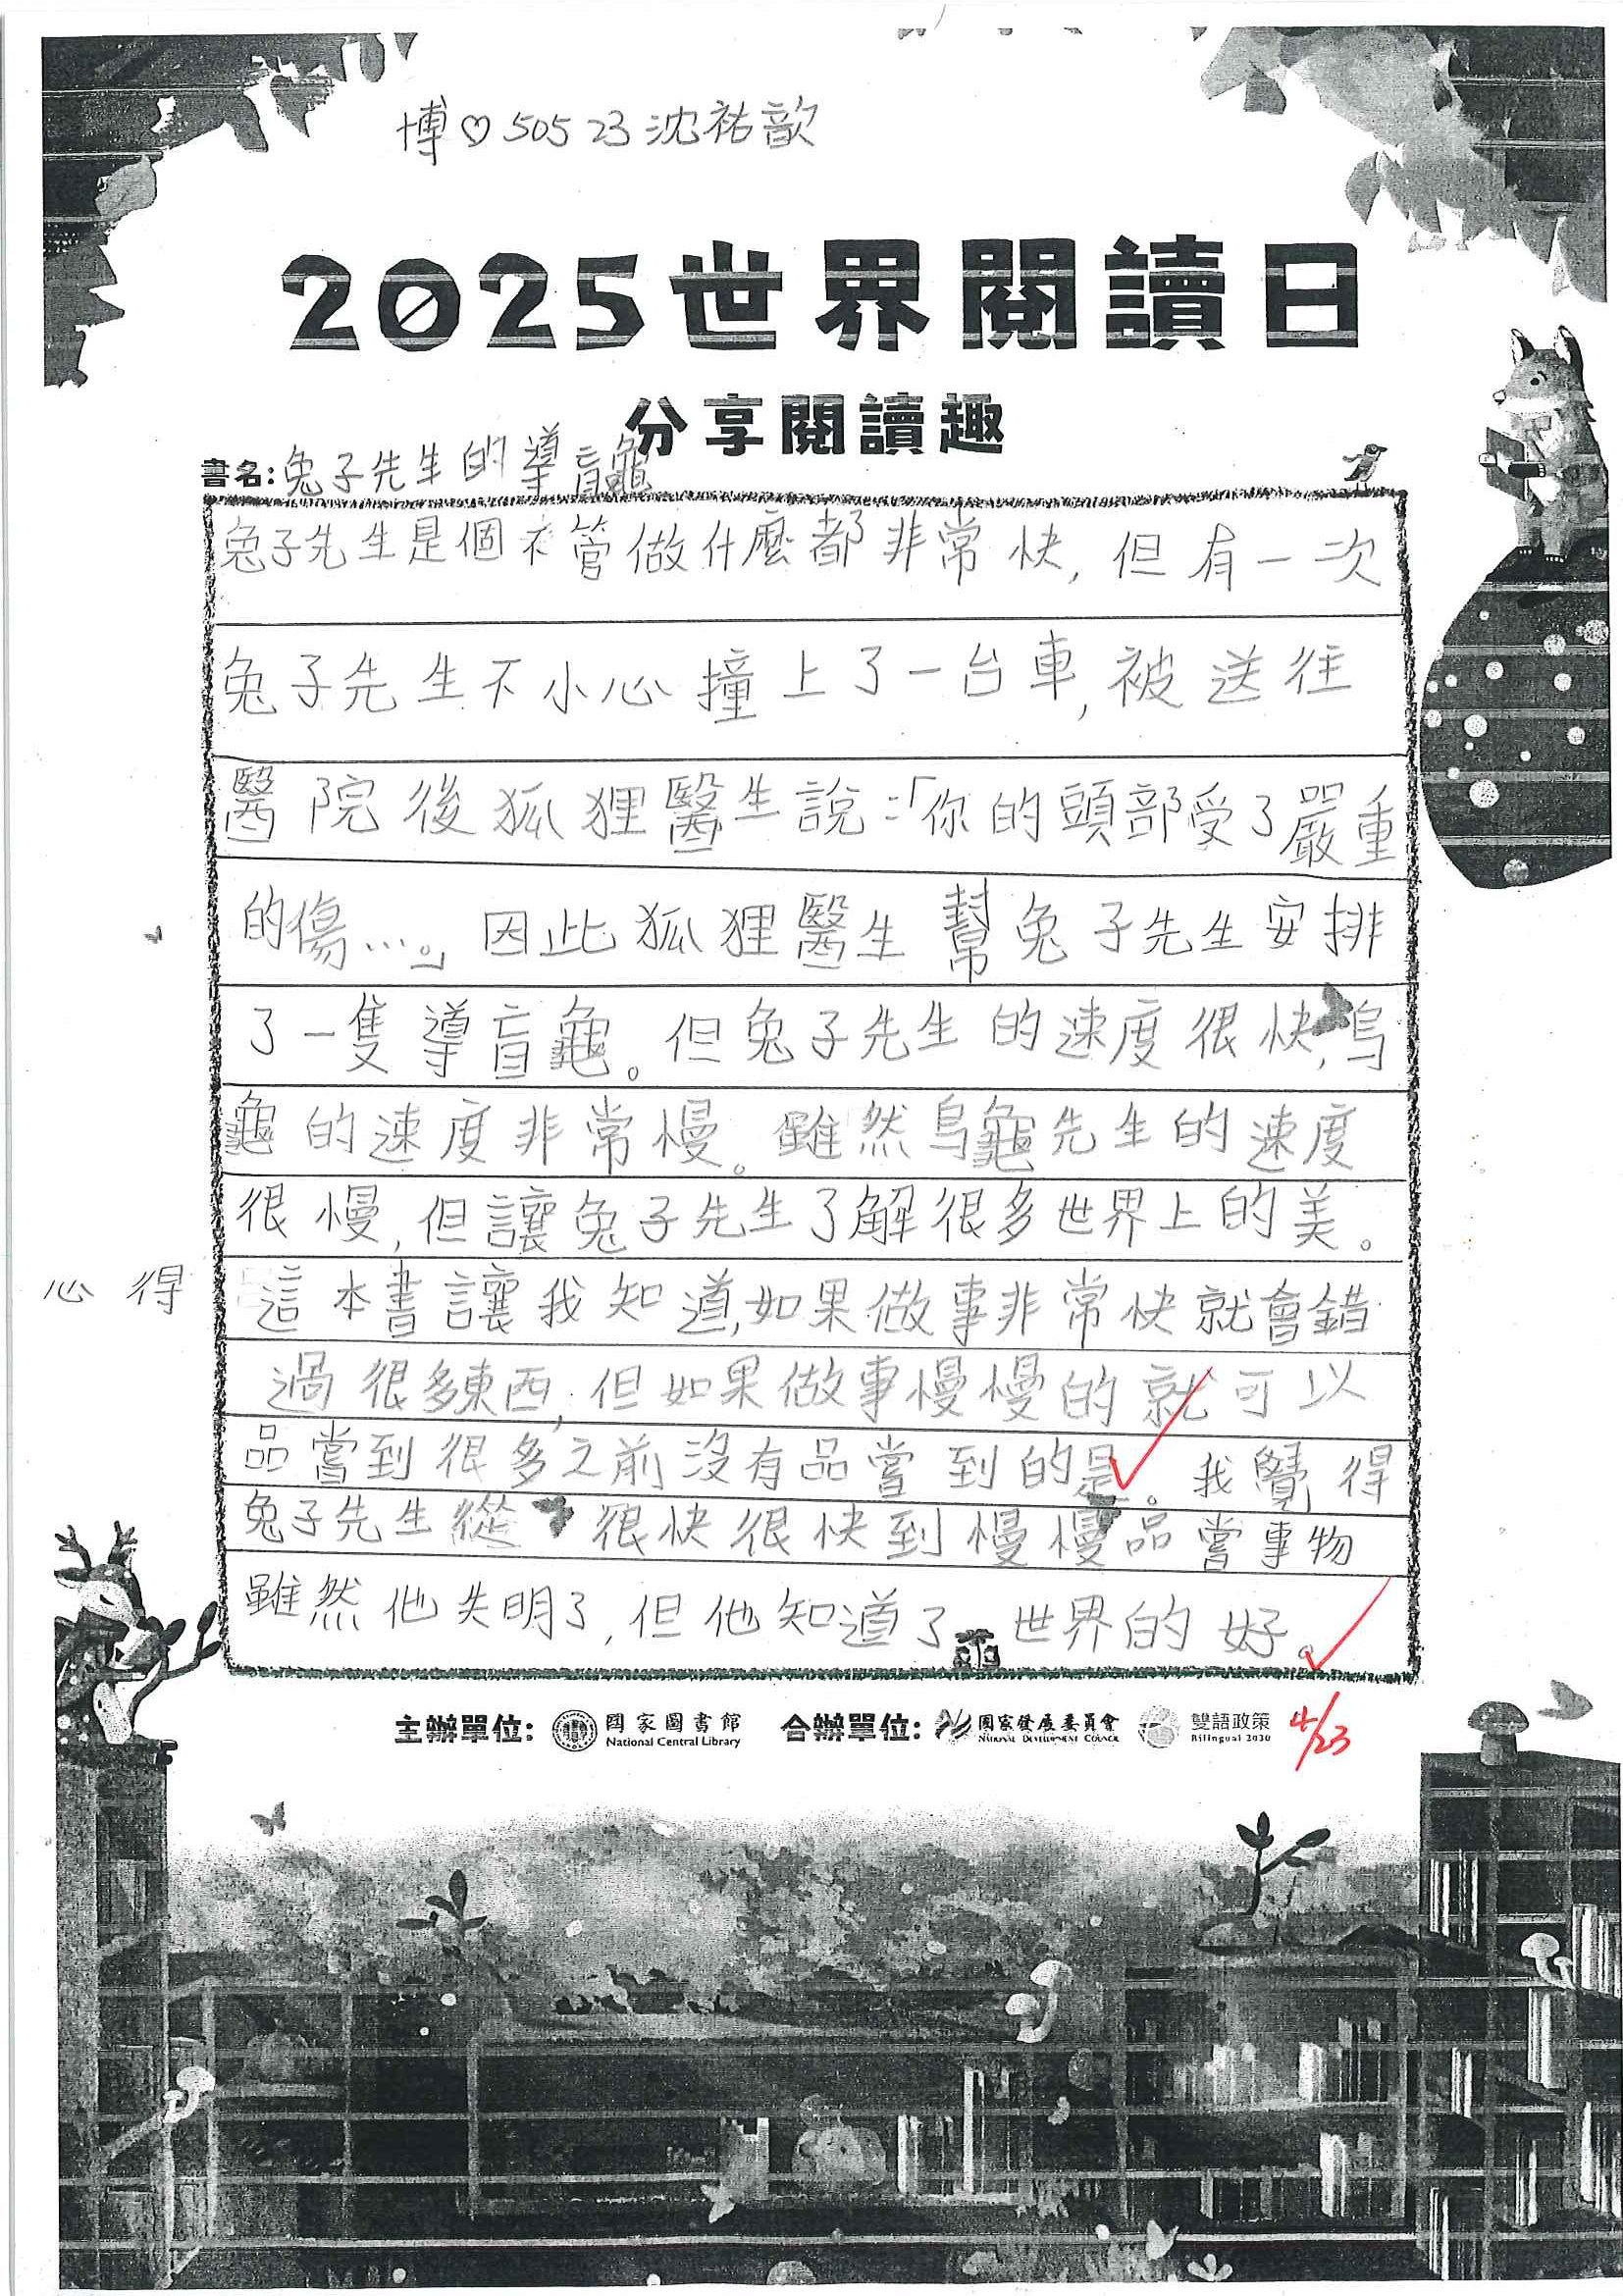 博♡50523沈祐歆
2025世界閱讀日
分享閱讀趣
書名:兔子先生的導盲龜
兔子先生是個不管做什麼都非常快,但有一次
兔子先生不小心撞上了一台車,被送往
醫院後狐狸醫生說:「你的頭部受了嚴重
的傷…。」因此狐狸醫生幫兔子先生安排
了一隻導盲龜。但兔子先生的速度很快,烏
龜的速度非常慢。雖然烏龜先生的速度
很慢,但讓兔子先生了解很多世界上的美。
心得 這本書讓我知道,如果做事非常快就會錯
過很多東西,但如果做事慢慢的就可以
品嘗到很多之前沒有品嘗到的是。我覺得
兔子先生從很快很快到慢慢品嘗事物
雖然他失明了,但他知道了世界的好。
主辦單位: 國家圖書館 National Central Library 合辦單位: 國家發展委員會 NATIONAL DEVELOPMENT COUNCIL 雙語政策 Bilingual 2030 4/23